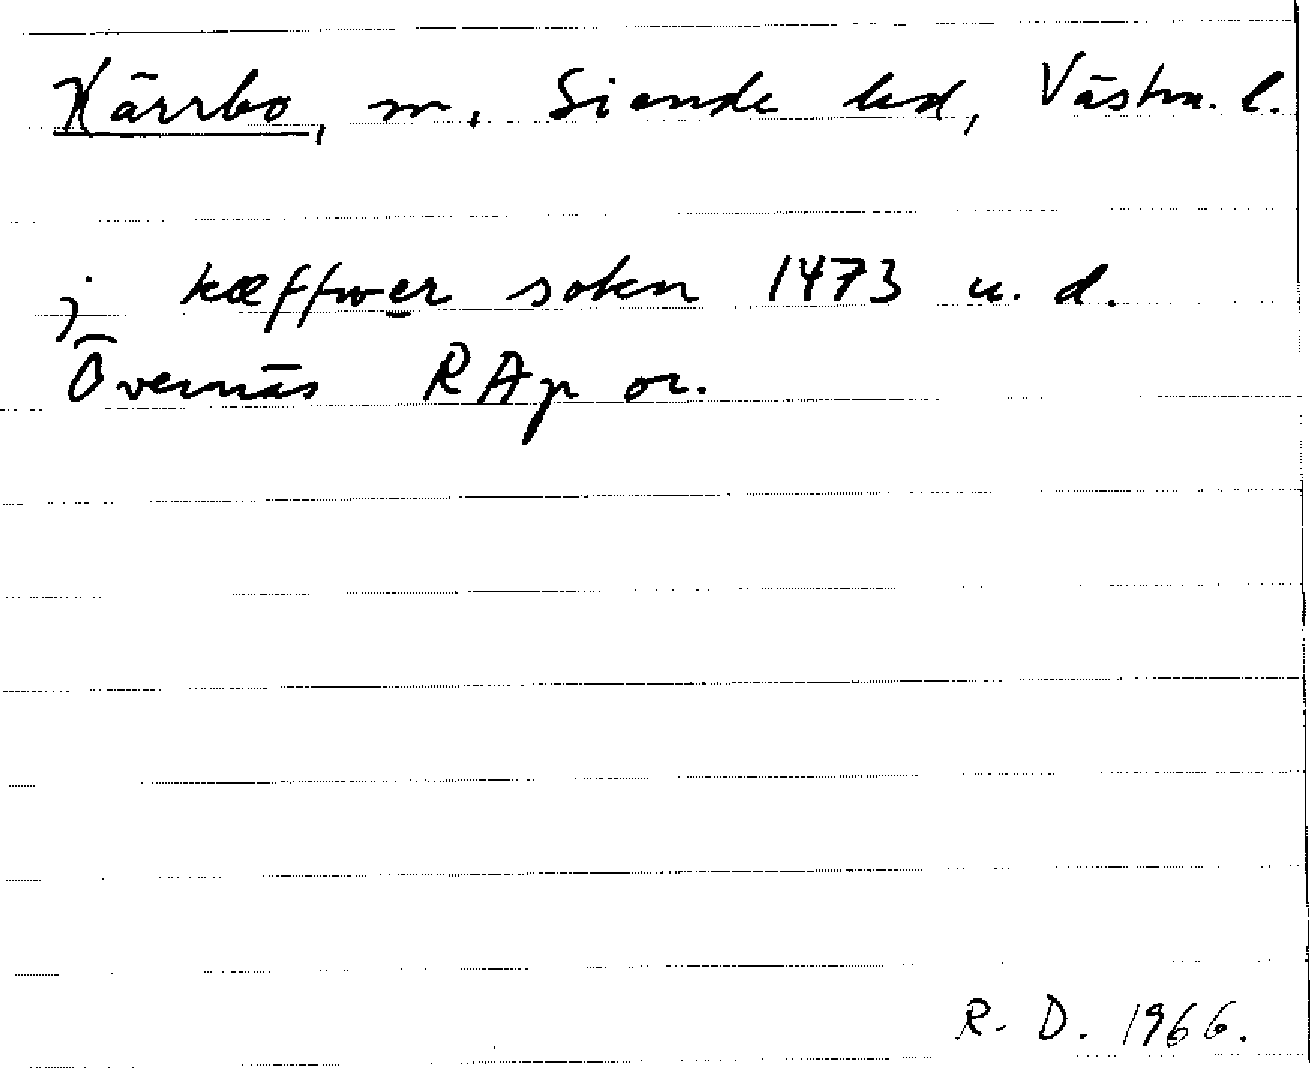 Kärrbo, sn. Siende hd, Västm. l.
j kæffwer soken 1473 u. d.
Övernäs RAp or.
R. D. 1966.